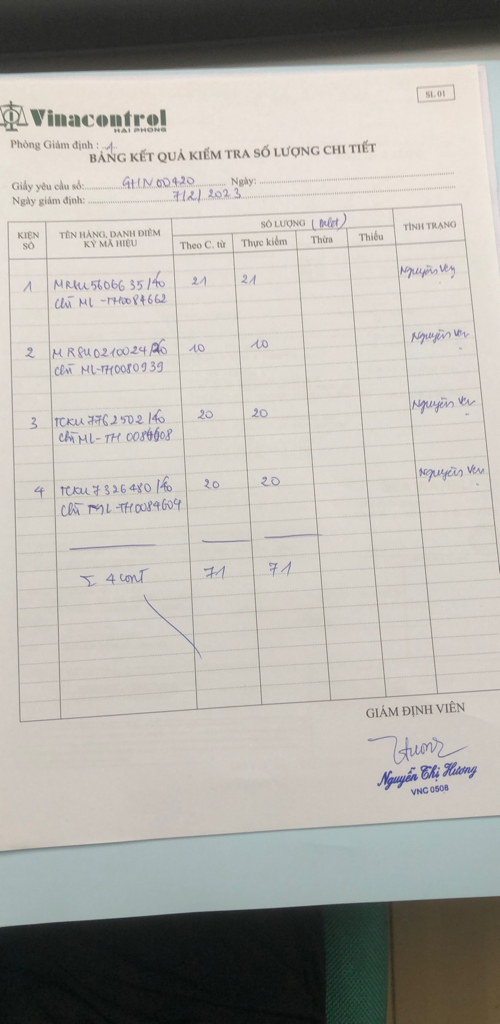 SL 01
Vinacontrol
HAI PHONG
Phòng Giám định : 1
BẢNG KẾT QUẢ KIỂM TRA SỐ LƯỢNG CHI TIẾT
Giấy yêu cầu số: GHN00420 Ngày:
Ngày giám định: 7/2/2023
KIỆN SỐ TÊN HÀNG, DANH ĐIỂM KÝ MÃ HIỆU SỐ LƯỢNG TÌNH TRẠNG
Theo C. từ Thực kiểm Thừa Thiếu
1 MRKU5606635/40 21 21 Nguyên vẹn
chì ML-TH0084662
2 MRSU0210024/40 10 10 Nguyên vẹn
chì ML-TH0080939
3 TCKU7762502/40 20 20 Nguyên vẹn
chì ML-TH0084608
4 TCKU7326480/40 20 20 Nguyên vẹn
chì ML-TH0084604
Σ 4 cont 71 71
GIÁM ĐỊNH VIÊN
Hương
Nguyễn Thị Hương
VNC 0508